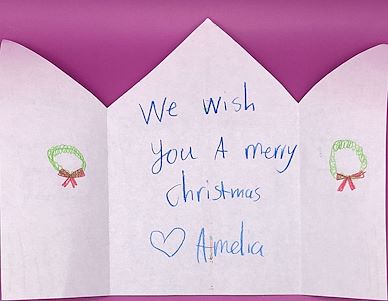 We wish
You A merry
christmas
♡ Amelia